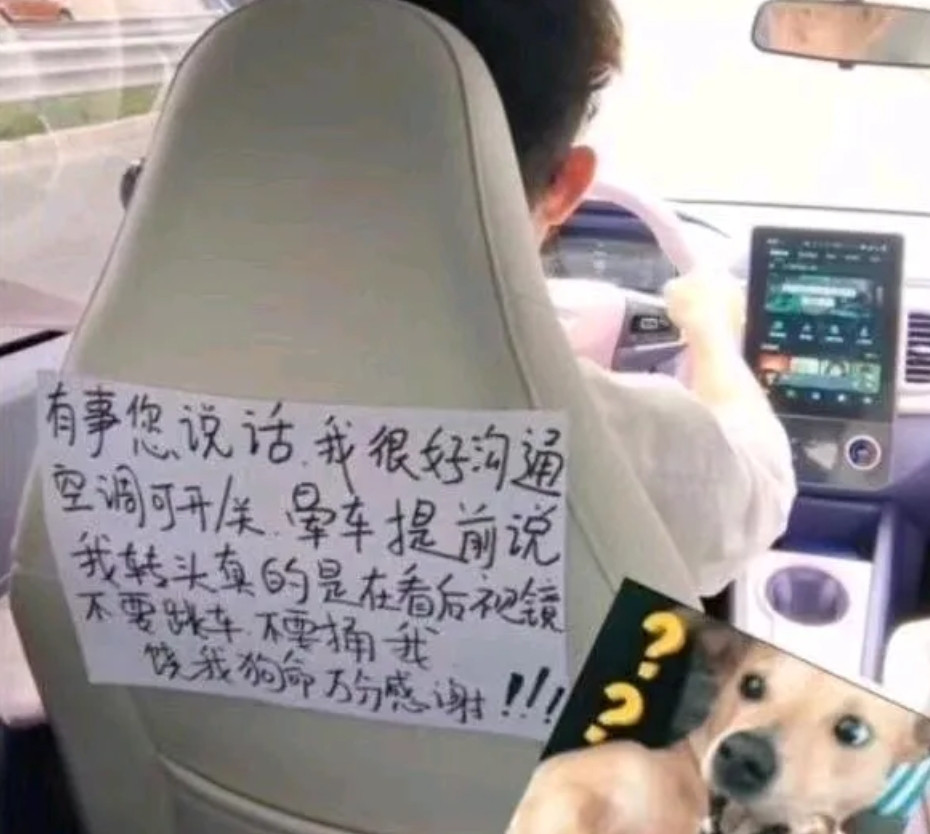 有事您说话.我很好沟通
空调可开/关.晕车提前说
我转头真的是在看后视镜
不要跳车.不要捅我
饶我狗命万分感谢!!!
??